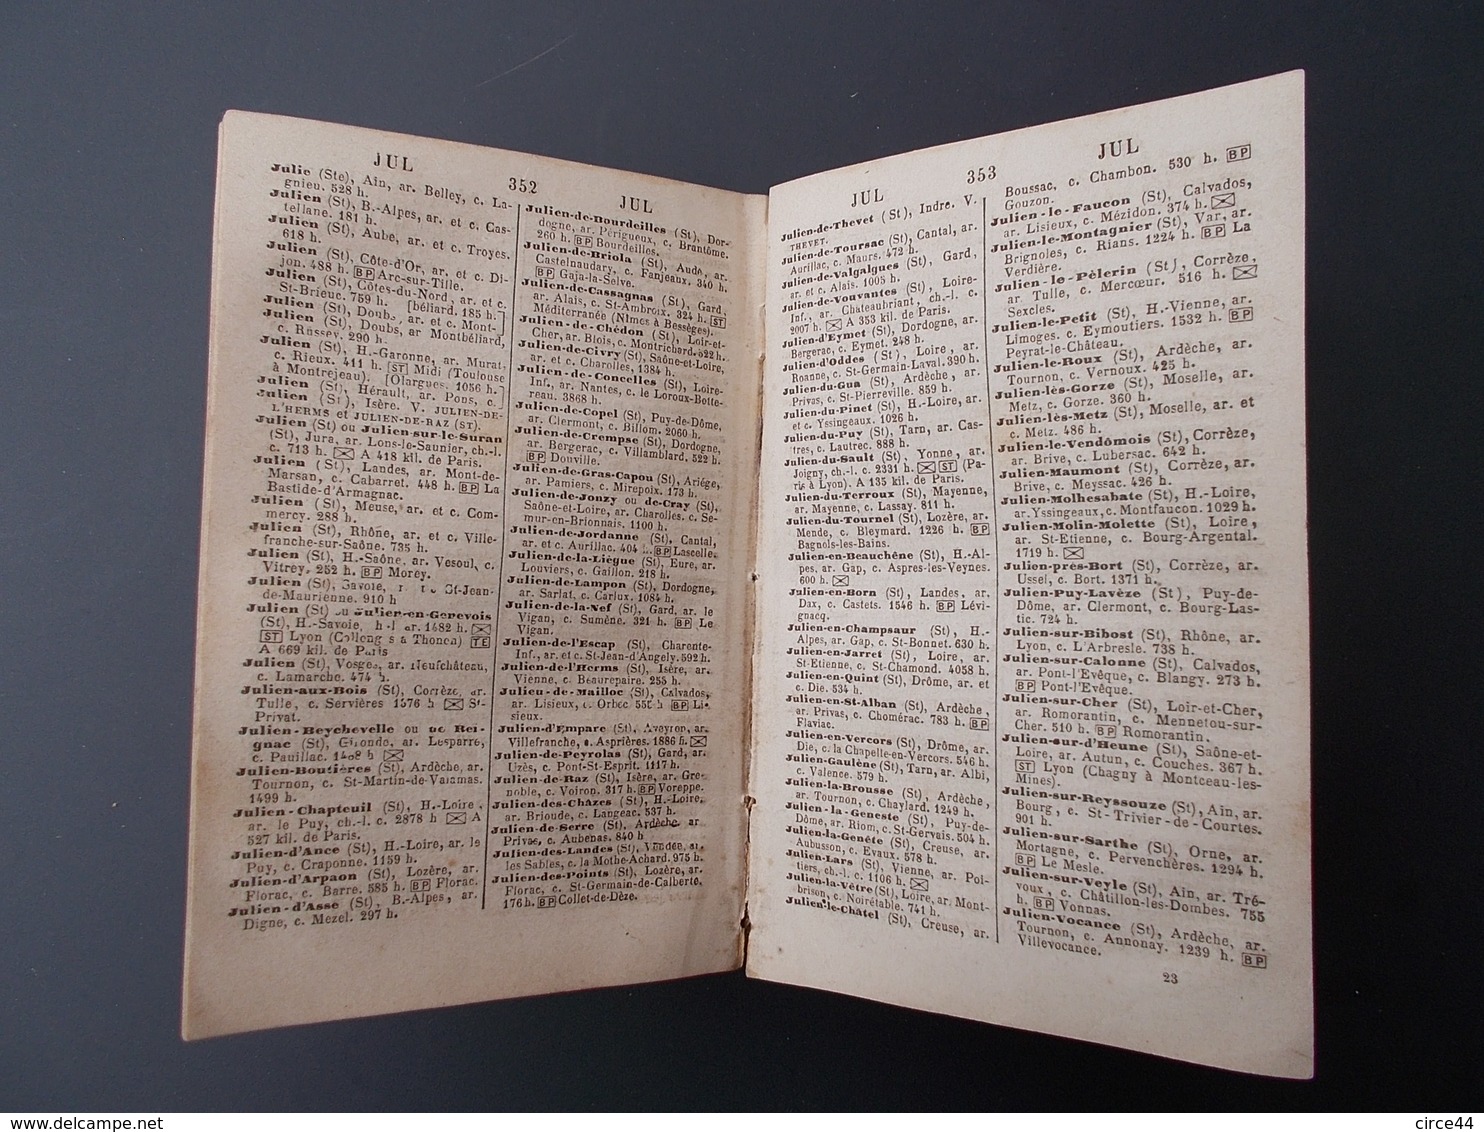 JUL
352
JUL
Julie (Ste), Ain, ar. Belley, c. La-
gnieu. 528 h.
Julien (St), B.-Alpes, ar. et c. Cas-
tellane. 181 h.
Julien (St), Aube, ar. et c. Troyes.
618 h.
Julien (St), Côte-d'Or, ar. et c. Di-
jon. 488 h. BP Arc-sur-Tille.
Julien (St), Côtes-du-Nord, ar. et c.
St-Brieuc. 759 h. [béliard. 185 h.
Julien (St), Doubs, ar. et c. Mont-
Julien (St), Doubs, ar. Montbéliard,
c. Russey. 290 h.
Julien (St), H.-Garonne, ar. Murat,
c. Rieux. 411 h. ST Midi (Toulouse
à Montrejeau). [Olargues. 1056 h.
Julien (St), Hérault, ar. Pons, c.
Julien (St), Isère. V. JULIEN-DE-
L'HERMS et JULIEN-DE-RAZ (ST).
Julien (St) ou Julien-sur-le-Suran
(St), Jura, ar. Lons-le-Saunier, ch.-l.
c. 713 h. A 418 kil. de Paris.
Julien (St), Landes, ar. Mont-de-
Marsan, c. Cabarret. 448 h. BP La
Bastide-d'Armagnac.
Julien (St), Meuse, ar. et c. Com-
mercy. 288 h.
Julien (St), Rhône, ar. et c. Ville-
franche-sur-Saône. 735 h.
Julien (St), H.-Saône, ar. Vesoul, c.
Vitrey. 252 h. BP Morey.
Julien (St), Savoie, St-Jean-
de-Maurienne. 910 h
Julien (St) ou Julien-en-Genevois
(St), H.-Savoie, ar. 1482 h.
ST Lyon (Collonges à Thonon) TE
A 669 kil. de Paris
Julien (St), Vosges, ar. Neufchâteau,
c. Lamarche. 474 h.
Julien-aux-Bois (St), Corrèze, ar.
Tulle, c. Servières 1576 h St-
Privat.
Julien-Beychevelle ou de Rei-
gnac (St), Gironde, ar. Lesparre,
c. Pauillac. h
Julien-Boutières (St), Ardèche, ar.
Tournon, c. St-Martin-de-Valamas.
1499 h.
Julien-Chapteuil (St), H.-Loire,
ar. le Puy, ch.-l. c. 2878 h A
527 kil. de Paris.
Julien-d'Ance (St), H.-Loire, ar. le
Puy, c. Craponne. 1159 h.
Julien-d'Arpaon (St), Lozère, ar.
Florac, c. Barre. 585 h. BP Florac.
Julien-d'Asse (St), B.-Alpes, ar.
Digne, c. Mezel. 297 h.
Julien-de-Bourdeilles (St), Dor-
dogne, ar. Périgueux, c. Brantôme.
260 h. BP Bourdeilles.
Julien-de-Briola (St), Aude, ar.
Castelnaudary, c. Fanjeaux. 340 h.
BP Gaja-la-Selve.
Julien-de-Cassagnas (St), Gard,
ar. Alais, c. St-Ambroix. 324 h. ST
Méditerranée (Nîmes à Bessèges).
Julien-de-Chédon (St), Loir-et-
Cher, ar. Blois, c. Montrichard. 522 h.
Julien-de-Civry (St), Saône-et-Loire,
ar. et c. Charolles, 1384 h.
Julien-de-Concelles (St), Loire-
Inf., ar. Nantes, c. le Loroux-Botte-
reau. 3868 h.
Julien-de-Copel (St), Puy-de-Dôme,
ar. Clermont, c. Billom. 2060 h.
Julien-de-Crempse (St), Dordogne,
ar. Bergerac, c. Villamblard. 522 h.
BP Douville.
Julien-de-Gras-Capou (St), Ariége,
ar. Pamiers, c. Mirepoix. 173 h.
Julien-de-Jonzy ou de-Cray (St),
Saône-et-Loire, ar. Charolles. c. Se-
mur-en-Brionnais. 1100 h.
Julien-de-Jordanne (St), Cantal,
ar. et c. Aurillac. 404 h. BP Lascelle.
Julien-de-la-Liègue (St), Eure, ar.
Louviers, c. Gaillon. 218 h.
Julien-de-Lampon (St), Dordogne,
ar. Sarlat, c. Carlux. 1084 h.
Julien-de-la-Nef (St), Gard, ar. le
Vigan, c. Sumène. 321 h. BP Le
Vigan.
Julien-de-l'Escap (St), Charente-
Inf., ar. et c. St-Jean-d'Angely. 592 h.
Julien-de-l'Herms (St), Isère, ar.
Vienne, c. Beaurepaire. 255 h.
Julien-de-Mailloc (St), Calvados,
ar. Lisieux, c. Orbec 550 h BP Li-
sieux.
Julien-d'Empare (St), Aveyron, ar.
Villefranche, c. Asprières. 1886 h.
Julien-de-Peyrolas (St), Gard, ar.
Uzès, c. Pont-St-Esprit. 1117 h.
Julien-de-Raz (St), Isère, ar. Gre-
noble, c. Voiron. 317 h. BP Voreppe.
Julien-des-Chazes (St), H.-Loire,
ar. Brioude, c. Langeac. 537 h.
Julien-de-Serre (St), Ardèche, ar
Privas, c. Aubenas. 840 h
Julien-des-Landes (St), Vendée, ar.
les Sables, c. la Mothe-Achard. 975 h.
Julien-des-Points (St), Lozère, ar.
Florac, c. St-Germain-de-Calberte,
176 h. BP Collet-de-Dèze.
JUL
353
JUL
Julien-de-Thevet (St), Indre. V.
THEVET.
Julien-de-Toursac (St), Cantal, ar.
Aurillac, c. Maurs. 472 h.
Julien-de-Valgalgues (St), Gard,
ar. et c. Alais. 1005 h.
Julien-de-Vouvantes (St), Loire-
Inf., ar. Châteaubriant, ch.-l. c.
2007 h. A 353 kil. de Paris.
Julien-d'Eymet (St), Dordogne, ar.
Bergerac, c. Eymet. 248 h.
Julien-d'Oddes (St), Loire, ar.
Roanne, c. St-Germain-Laval. 390 h.
Julien-du-Gua (St), Ardèche, ar.
Privas, c. St-Pierreville. 859 h.
Julien-du-Pinet (St), H.-Loire, ar.
et c. Yssingeaux. 1026 h.
Julien-du-Puy (St), Tarn, ar. Cas-
tres, c. Lautrec. 888 h.
Julien-du-Sault (St), Yonne, ar.
Joigny, ch.-l. c. 2331 h. ST (Pa-
ris à Lyon). A 135 kil. de Paris.
Julien-du-Terroux (St), Mayenne,
ar. Mayenne, c. Lassay. 811 h.
Julien-du-Tournel (St), Lozère, ar.
Mende, c. Bleymard. 1226 h. BP
Bagnols-les-Bains.
Julien-en-Beauchêne (St), H.-Al-
pes, ar. Gap, c. Aspres-les-Veynes.
600 h.
Julien-en-Born (St), Landes, ar.
Dax, c. Castets. 1546 h. BP Lévi-
gnacq.
Julien-en-Champsaur (St), H.-
Alpes, ar. Gap, c. St-Bonnet. 630 h.
Julien-en-Jarret (St), Loire, ar.
St-Etienne, c. St-Chamond. 4058 h.
Julien-en-Quint (St), Drôme, ar. et
c. Die. 534 h.
Julien-en-St-Alban (St), Ardèche,
ar. Privas, c. Chomérac. 783 h. BP
Flaviac.
Julien-en-Vercors (St), Drôme, ar.
Die, c. la Chapelle-en-Vercors. 546 h.
Julien-Gaulène (St), Tarn, ar. Albi,
c. Valence. 579 h.
Julien-la-Brousse (St), Ardèche,
ar. Tournon, c. Chaylard. 1249 h.
Julien-la-Geneste (St), Puy-de-
Dôme, ar. Riom, c. St-Gervais. 504 h.
Julien-la-Genête (St), Creuse, ar.
Aubusson, c. Evaux. 578 h.
Julien-Lars (St), Vienne, ar. Poi-
tiers, ch.-l. c. 1106 h.
Julien-la-Vêtre (St), Loire, ar. Mont-
brison, c. Noirétable. 741 h.
Julien-le-Châtel (St), Creuse, ar.
Boussac, c. Chambon. 530 h. BP
Gouzon.
Julien-le-Faucon (St), Calvados,
ar. Lisieux, c. Mézidon. 374 h.
Julien-le-Montagnier (St), Var, ar.
Brignoles, c. Rians. 1224 h. BP La
Verdière.
Julien-le-Pèlerin (St), Corrèze,
ar. Tulle, c. Mercœur. 516 h.
Sexcles.
Julien-le-Petit (St), H.-Vienne, ar.
Limoges. c. Eymoutiers. 1532 h. BP
Peyrat-le-Château.
Julien-le-Roux (St), Ardèche, ar.
Tournon, c. Vernoux. 425 h.
Julien-lès-Gorze (St), Moselle, ar.
Metz, c. Gorze. 360 h.
Julien-lès-Metz (St), Moselle, ar. et
c. Metz. 486 h.
Julien-le-Vendômois (St), Corrèze,
ar. Brive, c. Lubersac. 642 h.
Julien-Maumont (St), Corrèze, ar.
Brive, c. Meyssac. 426 h.
Julien-Molhesabate (St), H.-Loire,
ar. Yssingeaux, c. Montfaucon. 1029 h.
Julien-Molin-Molette (St), Loire,
ar. St-Etienne, c. Bourg-Argental.
1719 h.
Julien-près-Bort (St), Corrèze, ar.
Ussel, c. Bort. 1371 h.
Julien-Puy-Lavèze (St), Puy-de-
Dôme, ar. Clermont, c. Bourg-Las-
tic. 724 h.
Julien-sur-Bibost (St), Rhône, ar.
Lyon, c. L'Arbresle. 738 h.
Julien-sur-Calonne (St), Calvados,
ar. Pont-l'Evêque, c. Blangy. 273 h.
BP Pont-l'Evêque.
Julien-sur-Cher (St), Loir-et-Cher,
ar. Romorantin, c. Mennetou-sur-
Cher. 510 h. BP Romorantin.
Julien-sur-d'Heune (St), Saône-et-
Loire, ar. Autun, c. Couches. 367 h.
ST Lyon (Chagny à Montceau-les-
Mines).
Julien-sur-Reyssouze (St), Ain, ar.
Bourg, c. St-Trivier-de-Courtes.
901 h.
Julien-sur-Sarthe (St), Orne, ar.
Mortagne, c. Pervenchères. 1294 h.
BP Le Mesle.
Julien-sur-Veyle (St), Ain, ar. Tré-
voux, c. Châtillon-les-Dombes. 755
h. BP Vonnas.
Julien-Vocance (St), Ardèche, ar.
Tournon, c. Annonay. 1239 h. BP
Villevocance.
23
delcampe.net
circe44